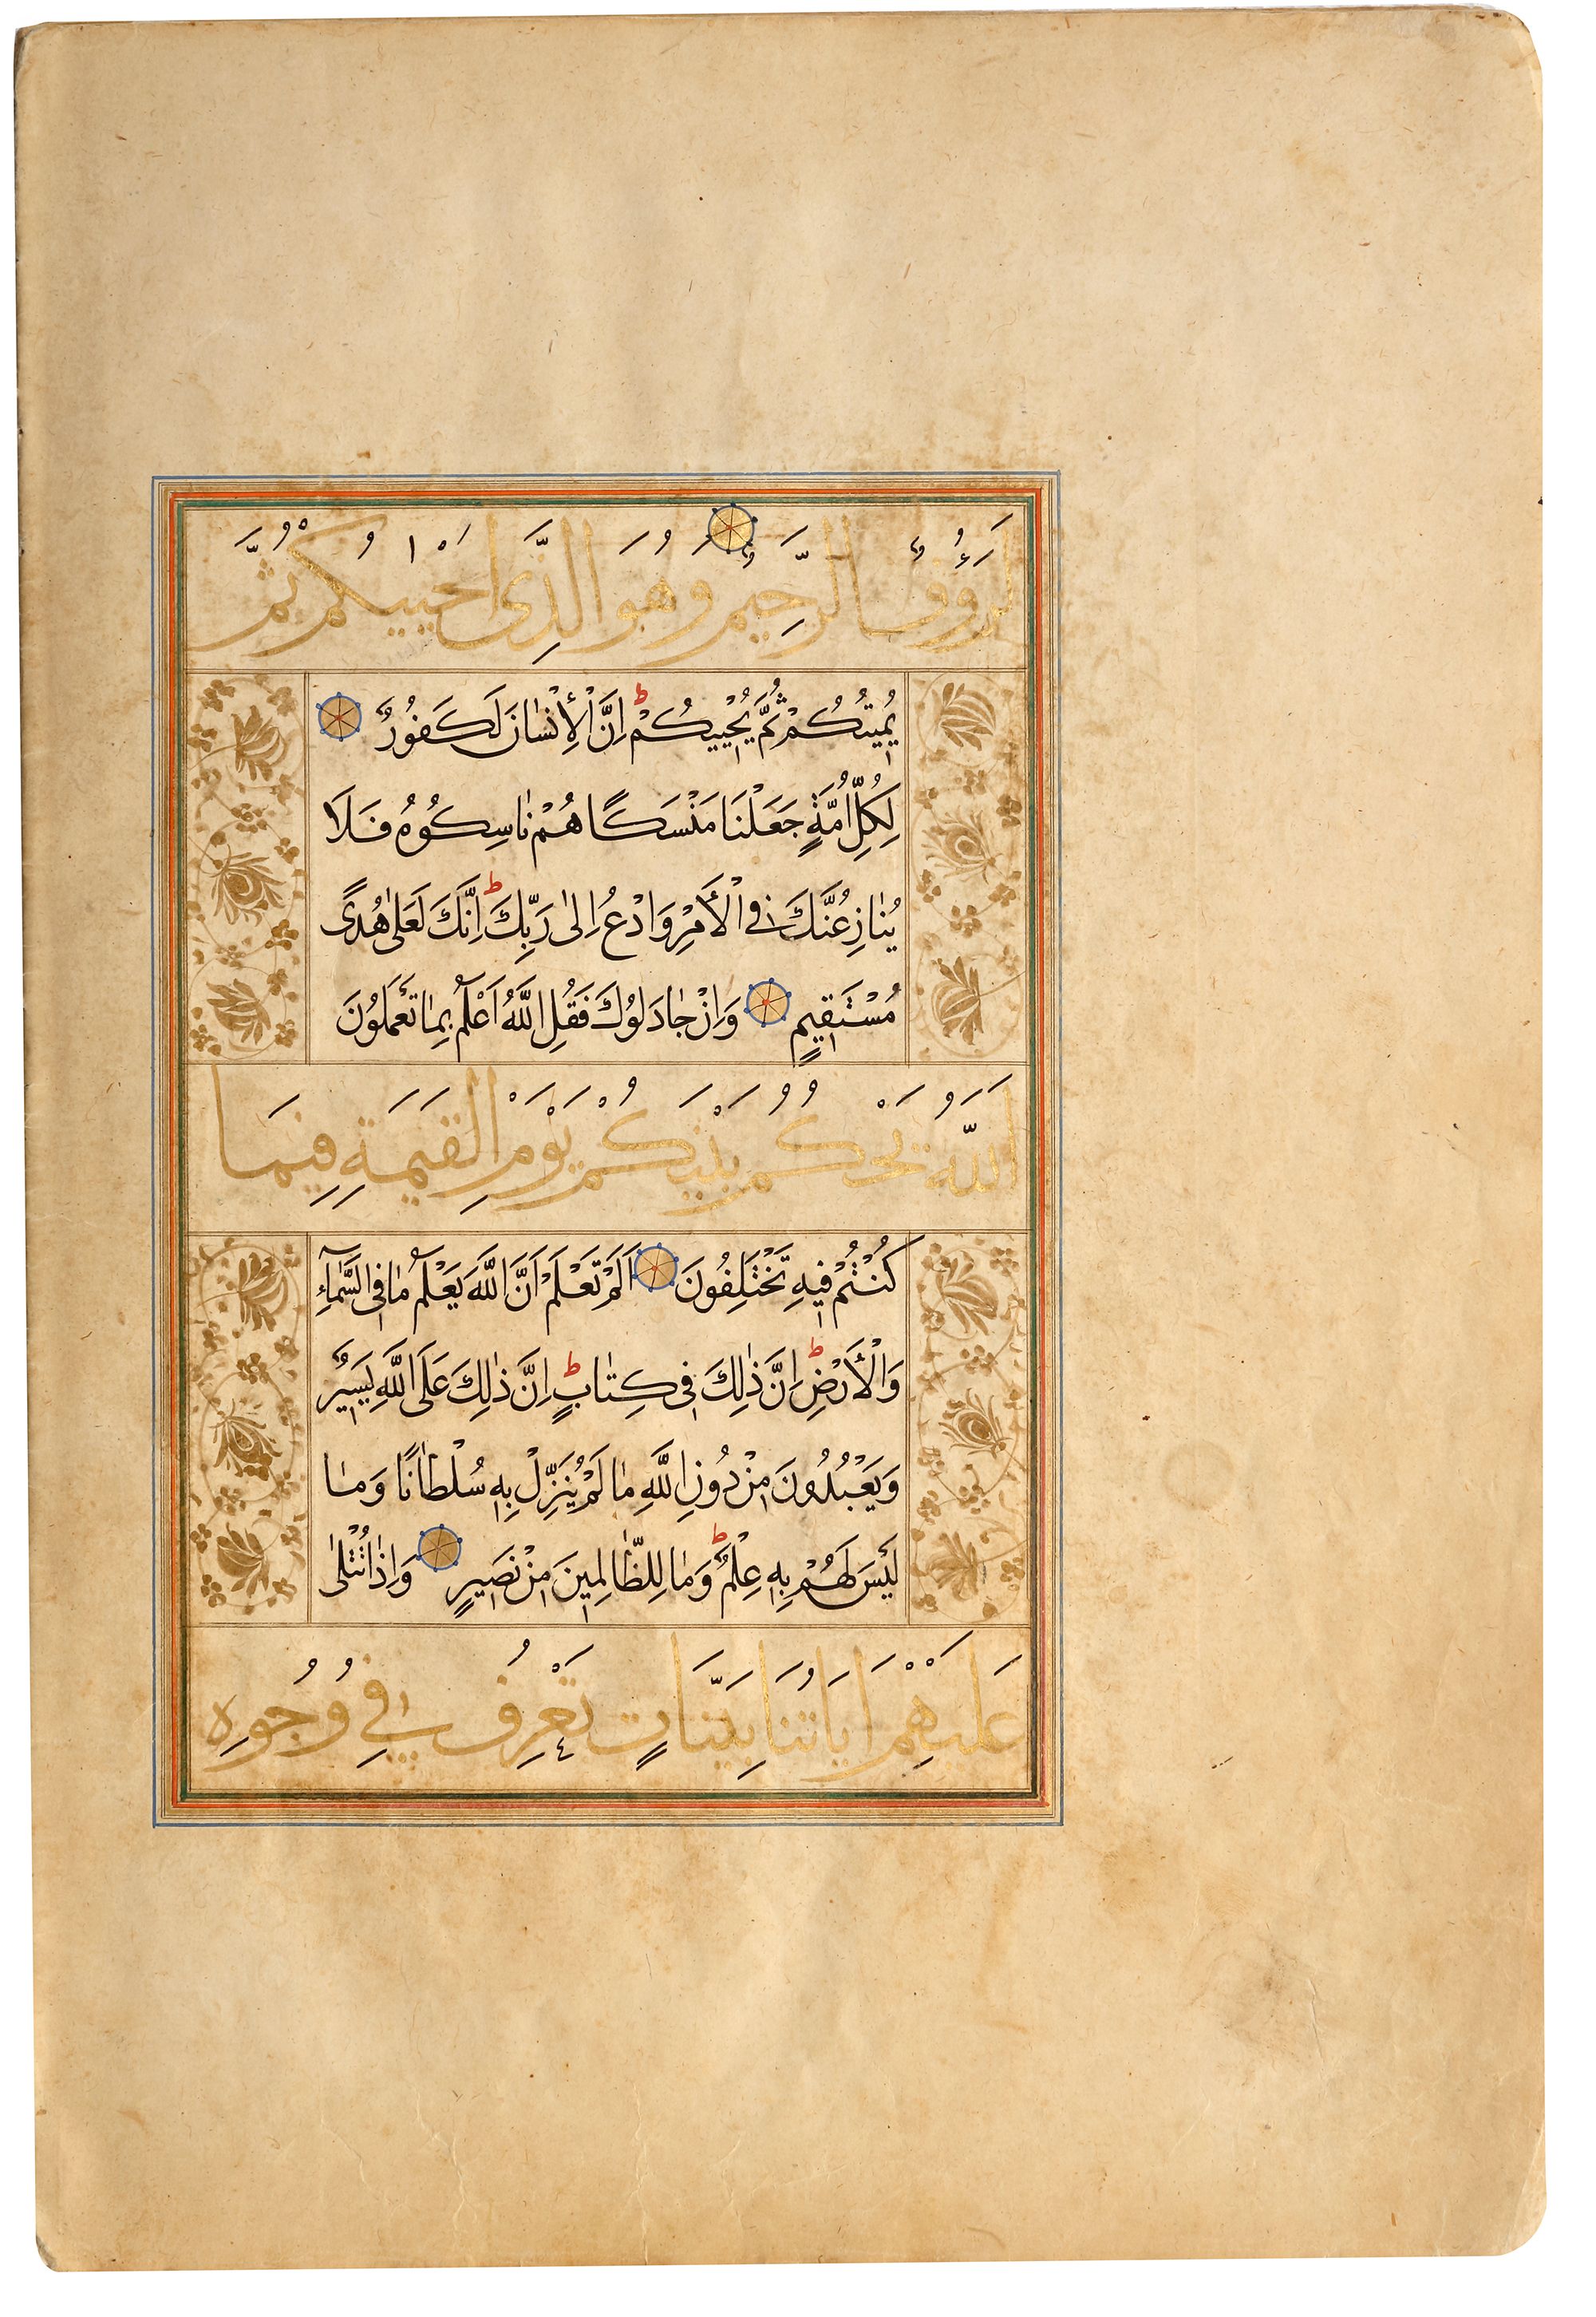 لَرَؤُفٌ الرَّحِيمٌ وَهُوَ الَّذِى اَحْيٰيكُمْ ثُمَّ
يُمِيتُكُمْ ثُمَّ يُحْيِيكُمْ ط اِنَّ الْأِنْسٰانَ لَكَفُورٌ
لِكُلِّ اُمَّةٍ جَعَلْنَا مَنْسَكًا هُمْ نٰاسِكُوُهُ فَلَا
يُنٰازِعُنَّكَ فِى الْأَمْرِ وَادْعُ اِلىٰ رَبِّكَ ط اِنَّكَ لَعَلىٰ هُدًى
مُسْتَقِيمٍ وَاِنْ جٰادَلوُكَ فَقُلِ اللَّهُ اَعْلَمُ بِمٰا تَعْمَلُونَ
اَللَّهُ يَحْكُمُ بَيْنَكُمْ يَوْمَ الْقِيمَةِ فِيمَا
كُنْتُمْ فِيهِ تَخْتَلِفُونَ اَلَمْ تَعْلَمْ اَنَّ اللَّهَ يَعْلَمُ مٰا فِى السَّمٰآءِ
وَالْأَرْضِ ط اِنَّ ذٰلِكَ فِى كِتٰابٍ ط اِنَّ ذٰلِكَ عَلَى اللَّهِ يَسِيرٌ
وَيَعْبُدُونَ مِنْ دُونِ اللَّهِ مٰا لَمْ يُنَزِّلْ بِهِ سُلْطٰانًا وَمٰا
لَيْسَ لَهُمْ بِهِ عِلْمٌ ط وَمٰا لِلظّٰالِمِينَ مِنْ نَصِيرٍ وَاِذٰا تُتْلىٰ
عَلَيْهِمْ اٰيَاتُنَا بَيِّنَاتٍ تَعْرِفُ فِي وُجُوِه